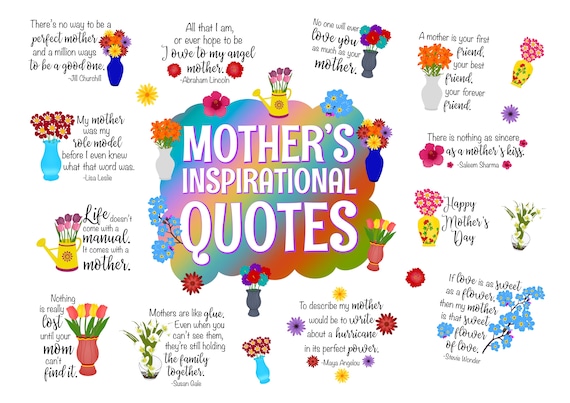 There's no way to be a
perfect mother
and a million ways
to be a good one.
-Jill Churchill
All that I am,
or ever hope to be
I owe to my angel
mother.
-Abraham Lincoln
No one will ever
love you
as much as your
mother.
A mother is your first
friend,
your best
friend,
your forever
friend.
My mother
was my
role model
before I even knew
what that word was.
-Lisa Leslie
MOTHER'S
INSPIRATIONAL
QUOTES
There is nothing as sincere
as a mother's kiss.
-Saleem Sharma
Life doesn't
come with a
manual.
It comes with a
mother.
Happy
Mother's
Day
Nothing
is really
lost
until your
mom
can't
find it.
Mothers are like glue.
Even when you
can't see them,
they're still holding
the family
together.
-Susan Gale
To describe my mother
would be to write
about a hurricane
in its perfect power.
-Maya Angelou
If love is as sweet
as a flower,
then my mother
is that sweet
flower
of love.
-Stevie Wonder